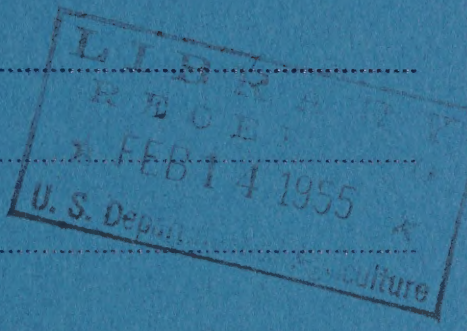 LIBRARY
RECEI
★ FEB 14 1955 ★
U. S. Depart culture